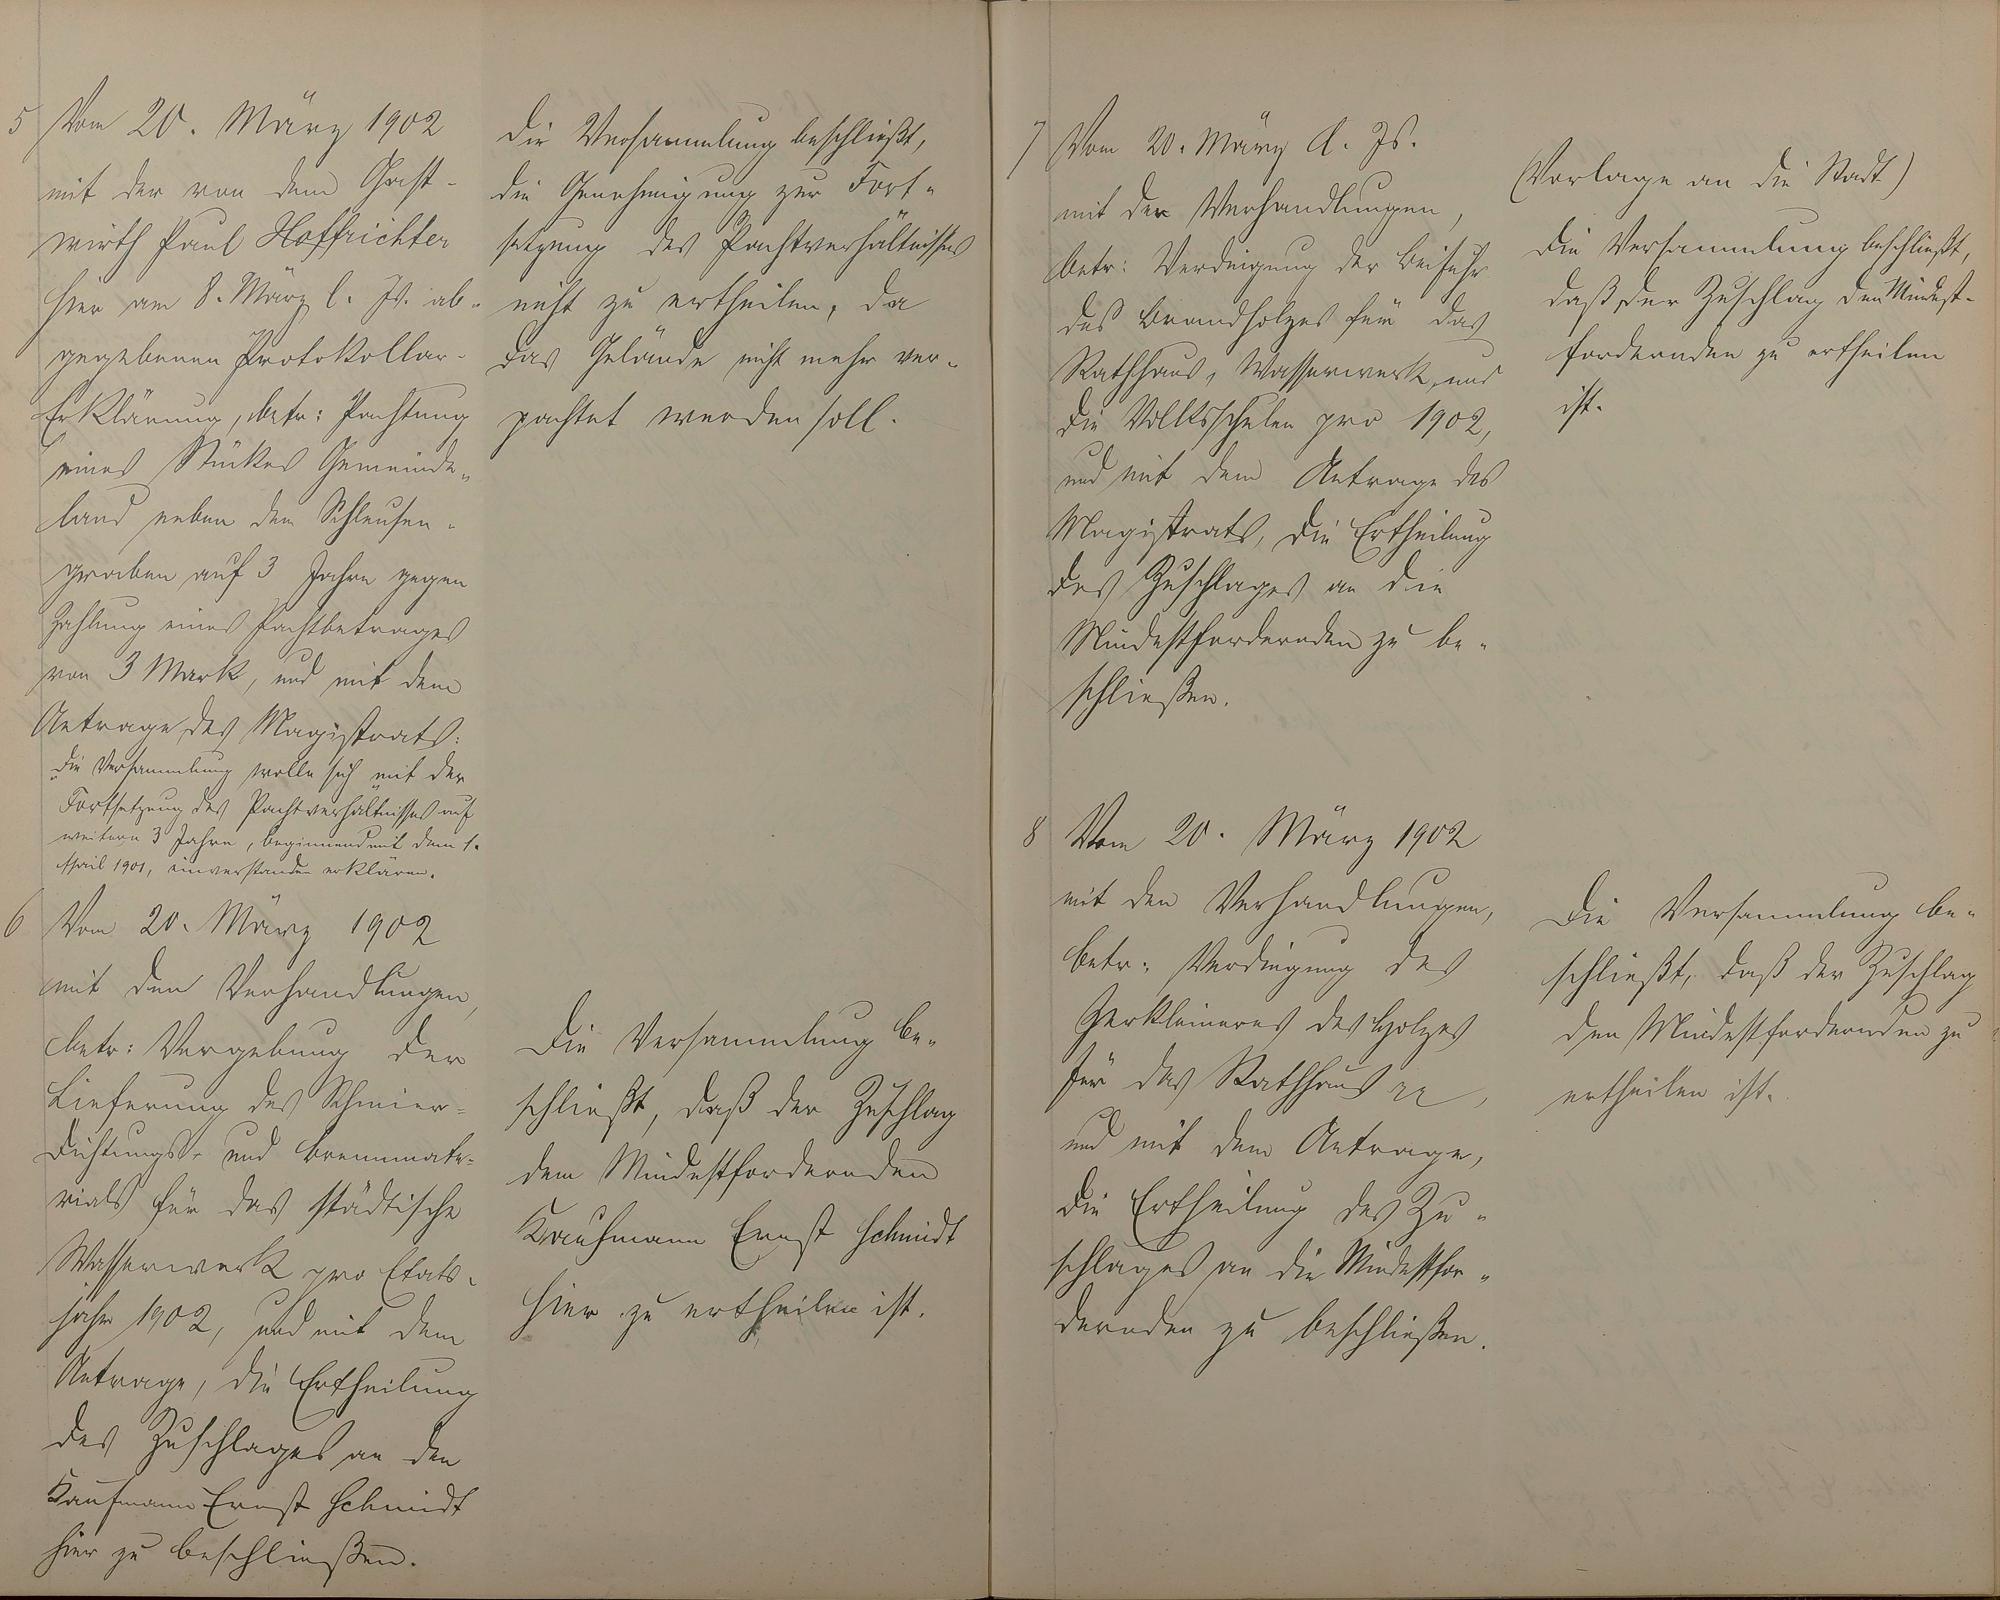 5 Vom 20. März 1902
mit der von dem Gast-
wirth Paul Hoffrichter
hier am 8. März l. Js. ab-
gegebenen Protokollar-
Erklärung, betr: Pachtung
eines Stückes Gemeinde-
land neben dem Schleusen-
graben auf 3 Jahre gegen
Zahlung eines Pachtbetrages
von 3 Mark, und mit dem
Antrage des Magistrats:
"die Versammlung wolle sich mit der
Fortsetzung des Pachtverhältnisses auf
weitere 3 Jahre, beginnend mit dem 1.
April 1901, einverstanden erklären.
Die Versammlung beschließt,
die Genehmigung zur Fort-
setzung des Pachtverhältnisses
nicht zu ertheilen, da
das Gelände nicht mehr ver-
pachtet werden soll.
6 Vom 20. März 1902
mit den Verhandlungen,
betr: Vergebung der
Lieferung des Schmier-
Dichtungs- und Brennmate-
rials für das städtische
Wasserwerk pro Etats-
jahr 1902, und mit dem
Antrage, die Ertheilung
des Zuschlages an den
Kaufmann Ernst Schmidt
hier zu beschließen.
Die Versammlung be-
schließt, daß der Zuschlag
dem Mindestfordernden
Kaufmann Ernst Schmidt
hier zu ertheilen ist.
7 Vom 20. März d. Js.
mit den Verhandlungen,
betr: Verdingung der Beifuhr
des Brandholzes für das
Rathhaus, Wasserwerk, und
die Volksschulen pro 1902,
und mit dem Antrage des
Magistrats, die Ertheilung
des Zuschlages an die
Mindestfordernden zu be-
schließen.
(Vorlage an die Stadt)
Die Versammlung beschließt,
daß der Zuschlag den Mindest-
fordernden zu ertheilen
ist.
8 Vom 20. März 1902
mit den Verhandlungen,
betr: Verdingung des
Zerkleinerns des Holzes
für das Rathhaus rc,
und mit dem Antrage,
die Ertheilung des Zu-
schlages an die Mindestfor-
dernden zu beschließen.
Die Versammlung be-
schließt, daß der Zuschlag
den Mindestfordernden zu
ertheilen ist.